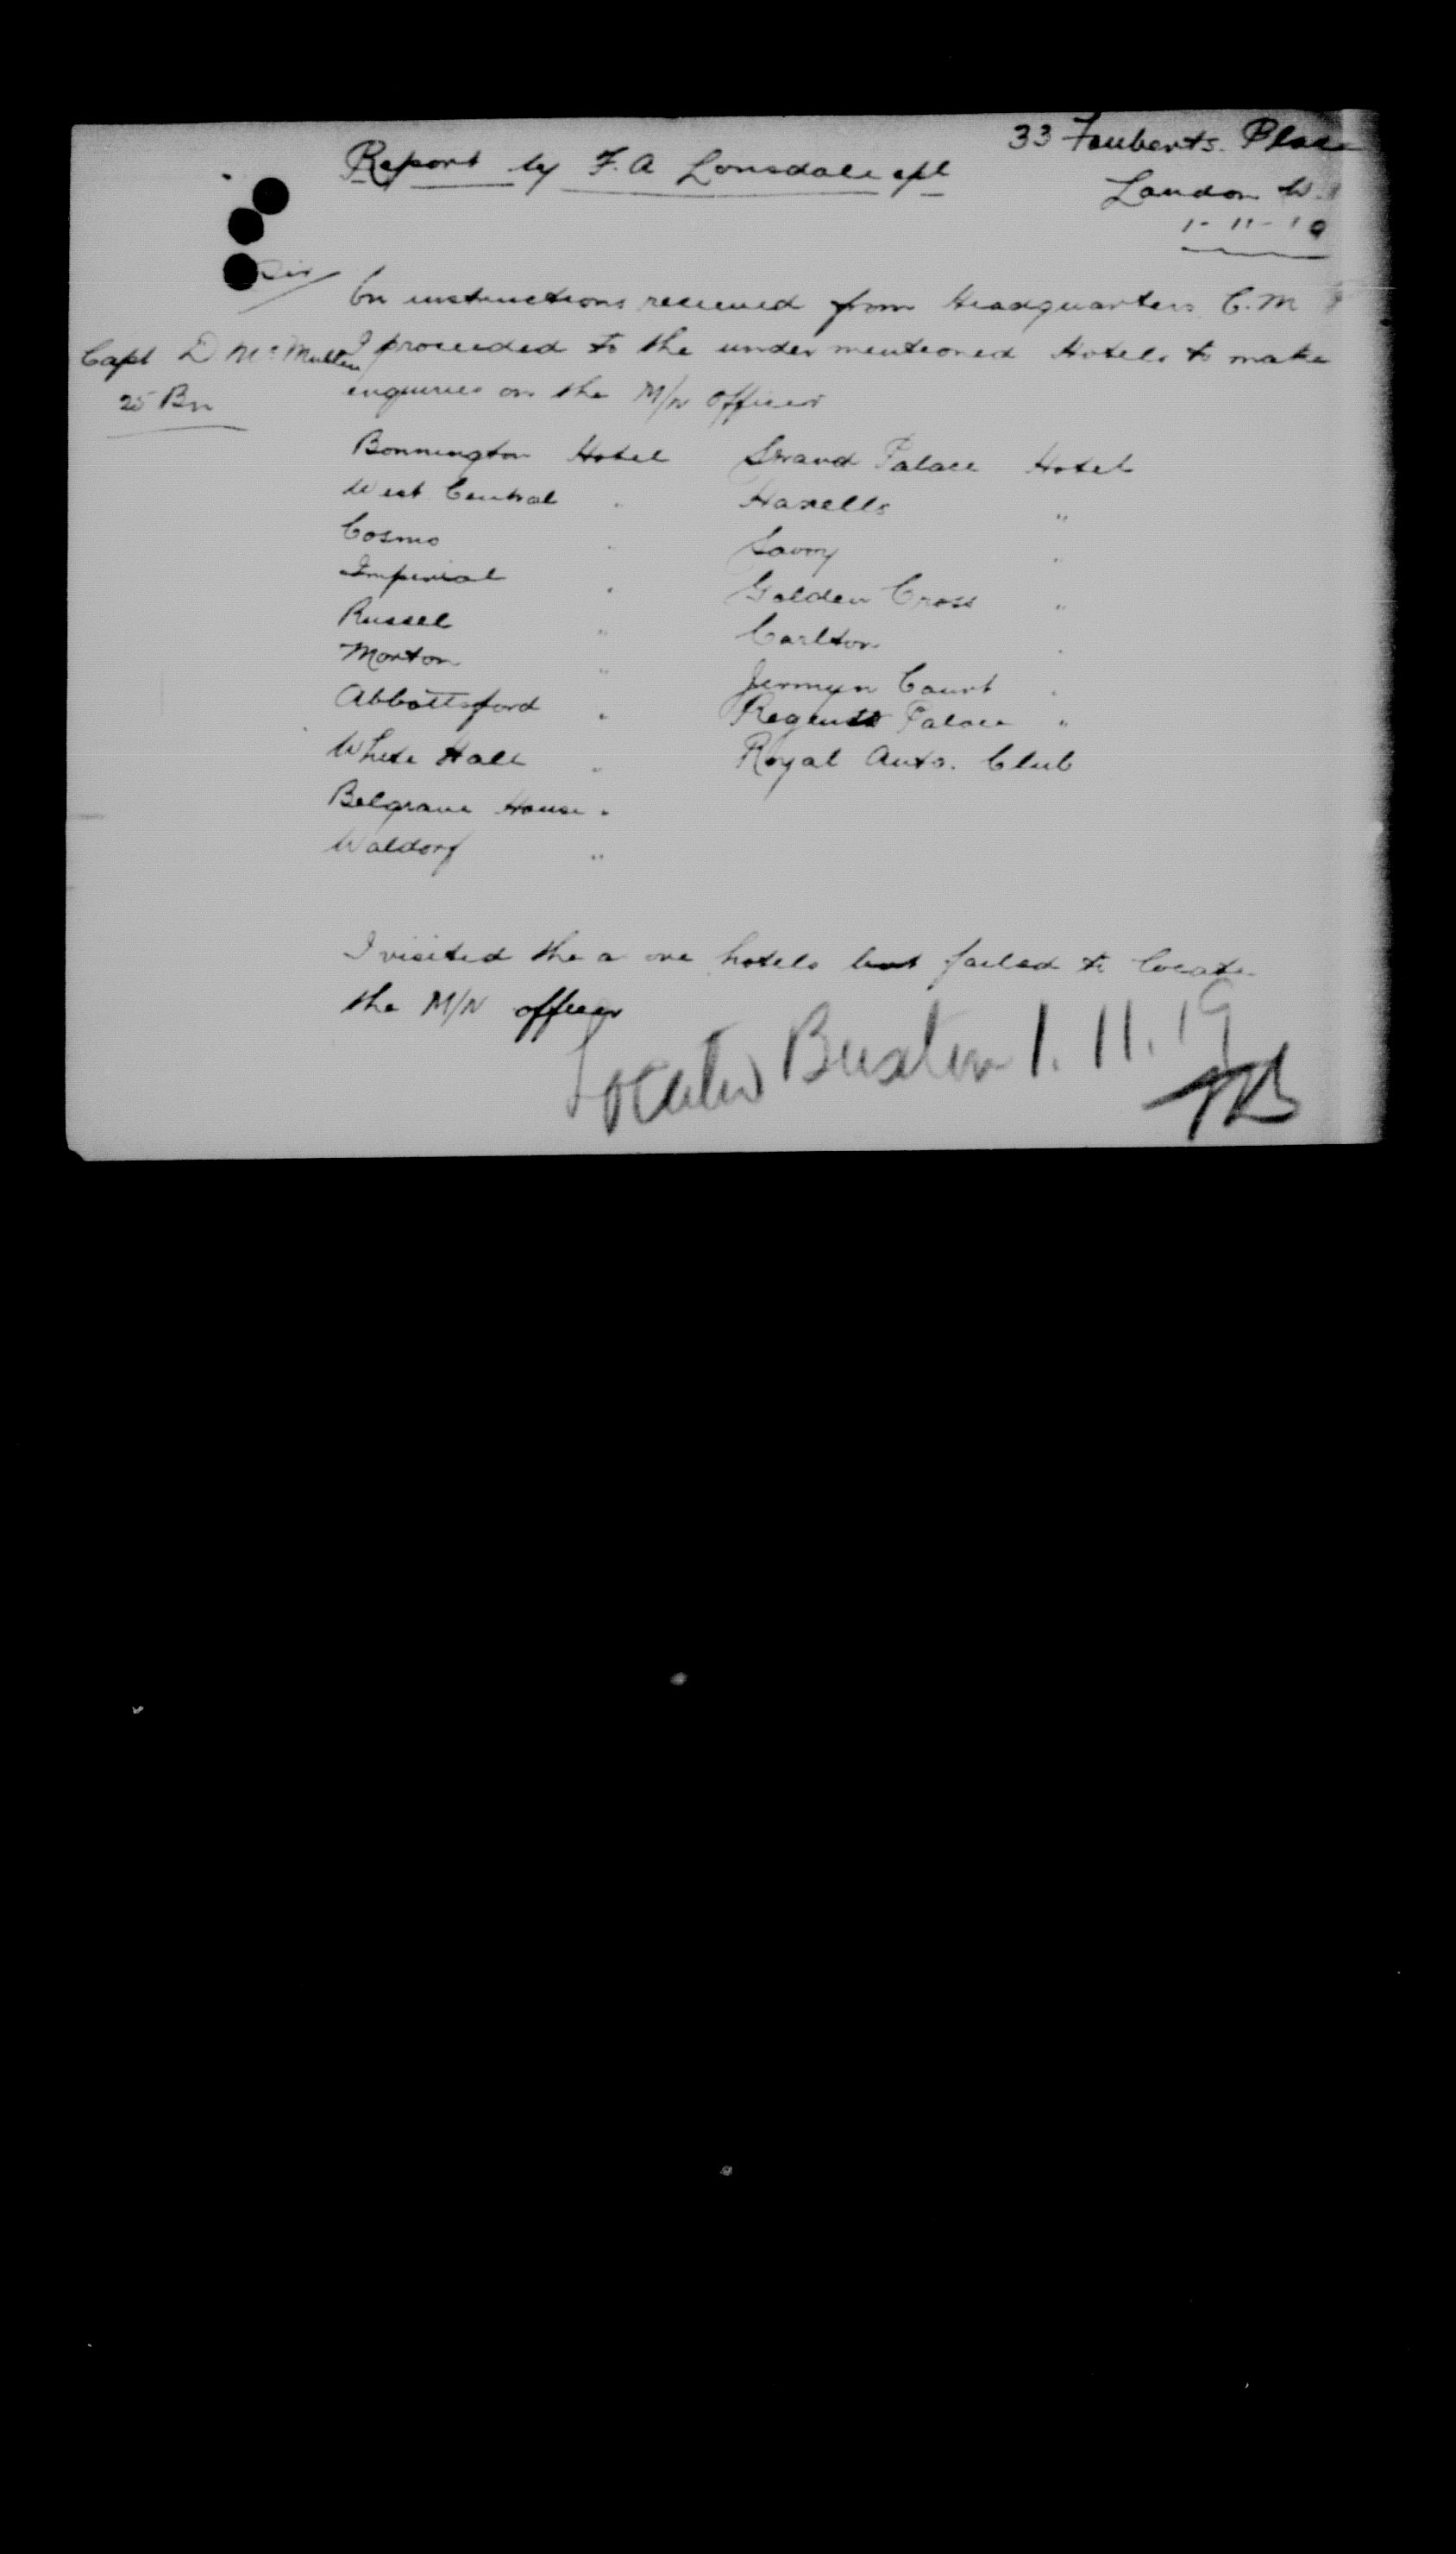 33 Fouberts. Place
Report by F. A Lonsdale cpl
London W.1
1-11-19
Sir/
On instructions received from Headquarters C.M
Capt D McMullen
I proceeded to the under mentioned Hotels to make
25 Bn
enquiries on the M/N Officer
Bonnington Hotel Strand Palace Hotel
West Central " Haxells "
Cosmo " Savoy "
Imperial " Golden Cross "
Russel " Carlton "
Morton " Jermyn Court "
Abbottsford " Regent Palace "
White Hall " Royal Auto. Club
Belgrave House "
Waldorf "
I visited the a ove hotels but failed to locate
the M/N officer
Located Buxton 1.11.19